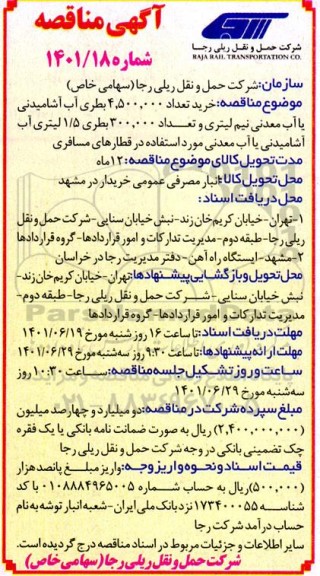 آگهی مناقصه
شرکت حمل و نقل ریلی رجا
RAJA RAIL TRANSPORTATION CO.
شماره ۱۴۰۱/۱۸
سازمان: شرکت حمل و نقل ریلی رجا (سهامی خاص)
موضوع مناقصه: خرید تعداد ۴,۵۰۰,۰۰۰ بطری آب آشامیدنی
یا آب معدنی نیم لیتری و تعداد ۳۰۰,۰۰۰ بطری ۱/۵ لیتری آب
آشامیدنی یا آب معدنی مورد استفاده در قطارهای مسافری
مدت تحویل کالای موضوع مناقصه: ۱۲ ماه
محل تحویل کالا: انبار مصرفی عمومی خریدار در مشهد
محل دریافت اسناد:
۱- تهران- خیابان کریم خان زند- نبش خیابان سنایی- شرکت حمل و نقل
ریلی رجا- طبقه دوم- مدیریت تدارکات و امور قراردادها- گروه قراردادها
۲- مشهد- ایستگاه راه آهن- دفتر مدیریت رجا در خراسان
محل تحویل و بازگشایی پیشنهادها: تهران- خیابان کریم خان زند-
نبش خیابان سنایی- شرکت حمل و نقل ریلی رجا- طبقه دوم-
مدیریت تدارکات و امور قراردادها- گروه قراردادها
مهلت دریافت اسناد: تا ساعت ۱۶ روز شنبه مورخ ۱۴۰۱/۰۶/۱۹
مهلت ارائه پیشنهادها: تا ساعت ۹:۳۰ روز سه شنبه مورخ ۱۴۰۱/۰۶/۲۹
ساعت و روز تشکیل جلسه مناقصه: ساعت ۱۰:۳۰ روز
سه شنبه مورخ ۱۴۰۱/۰۶/۲۹
مبلغ سپرده شرکت در مناقصه: دو میلیارد و چهارصد میلیون
(۲,۴۰۰,۰۰۰,۰۰۰) ریال به صورت ضمانت نامه بانکی یا یک فقره
چک تضمینی بانکی در وجه شرکت حمل و نقل ریلی رجا
قیمت اسناد و نحوه واریز وجه: واریز مبلغ پانصد هزار
(۵۰۰,۰۰۰) ریال به حساب شماره ۰۱۰۸۸۸۴۹۶۵۰۰۵ با کد
شناسه ۱۷۳۴۰۰۰۵۵ نزد بانک ملی ایران- شعبه انبار توشه به نام
حساب درآمد شرکت رجا
سایر اطلاعات و جزئیات مربوط در اسناد مناقصه درج گردیده است.
شرکت حمل و نقل ریلی رجا (سهامی خاص)